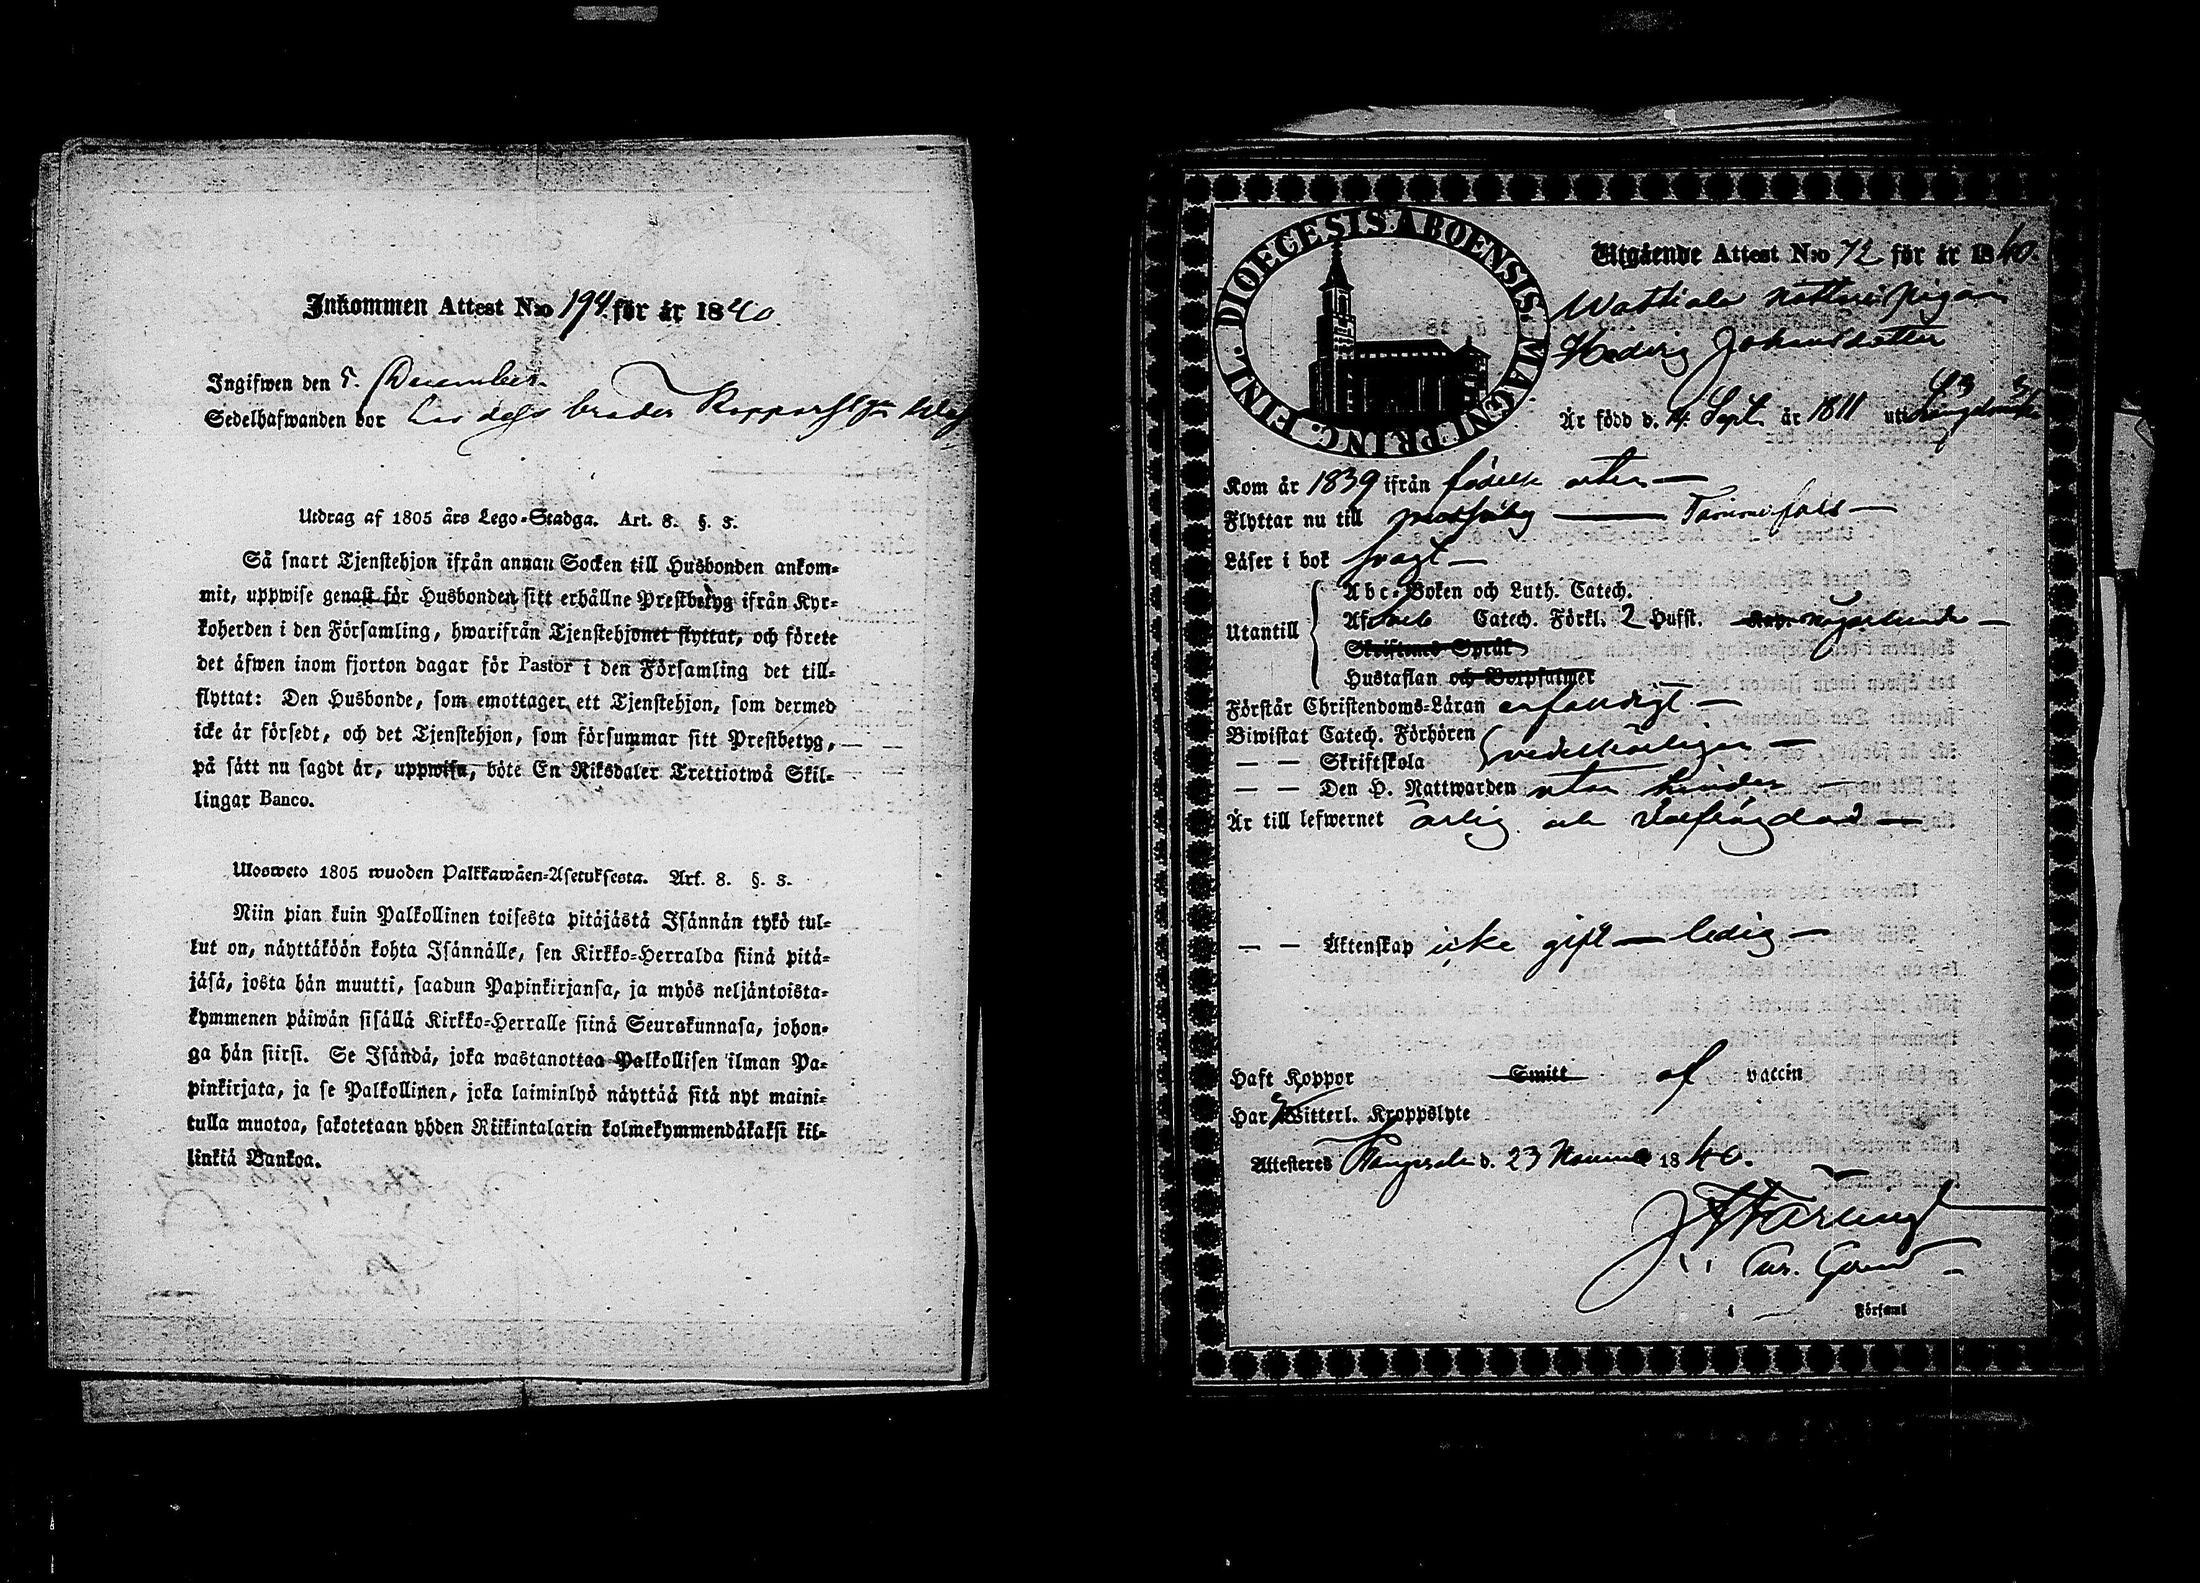 Inkommen Attest N:o 194. för år 1840.
Ingifwen den 5. December.
Sedelhafwanden bor hos dess broder
Utdrag af 1805 års Lego-Stadga. Art. 8. §. 3.
Så snart Tjenstehjon ifrån annan Socken till Husbonden ankom-
mit, uppwise genast för Husbonden sitt erhållne Prestbetyg ifrån Kyr-
koherden i den Församling, hwarifrån Tjenstehjonet flyttat, och förete
det äfwen inom fjorton dagar för Pastor i den Församling det till-
flyttat: Den Husbonde, som emottager ett Tjenstehjon, som dermed
icke är försedt, och det Tjenstehjon, som försummar sitt Prestbetyg,
på sätt nu sagdt är, uppwisa, böte En Riksdaler Trettiotwå Skil-
lingar Banco.
Ulosweto 1805 wuoden Palkkawäen-Asetuksesta. Art. 8. §. 3.
Niin pian kuin Palkollinen toisesta pitäjästä Isännän tykö tul-
lut on, näyttäköön kohta Isännälle, sen Kirkko-Herralda siinä pitä-
jäsä, josta hän muutti, saadun Papinkirjansa, ja myös neljäntoista-
kymmenen päiwän sisällä Kirkko-Herralle siinä Seurakunnasa, johon-
ga hän siirsi. Se Isändä, joka wastanottaa Palkollisen ilman Pa-
pinkirjata, ja se Palkollinen, joka laiminlyö näyttää sitä nyt maini-
tulla muotoa, sakotetaan yhden Riikintalarin kolmekymmendäkaksi kil-
linkiä Bankoa.
DIOECESIS ABOENSIS. MAGNI PRINC. FINL.
Utgående Attest N:o 72 för år 1840.
Wattiala pigan
Hedvig Johansdotter
Är född d. 14 Sept. år 1811 uti Längelmäki
Kom år 1839 ifrån födelse orten —
Flyttar nu till — Tammerfors —
Läser i bok svagt —
Utantill
Abc-Boken och Luth. Catech.
Af Catech. Förkl. 2 Hufst. Kap. någorlunda —
Skriftenes Språk
Hustaflan och Botpsalmer
Förstår Christendoms-Läran enfaldigt. —
Biwistat Catech. Förhören
— — Skriftskola vederbörligen —
— — Den H. Nattwarden utan hinder —
Är till lefwernet ärlig och välfrägdad —
— — Äktenskap icke gift — ledig —
Haft Koppor Smitt af vaccin
Har Witterl. Kroppslyte
Attesteres Kangasala d. 23 Novemb 1840.
Församl